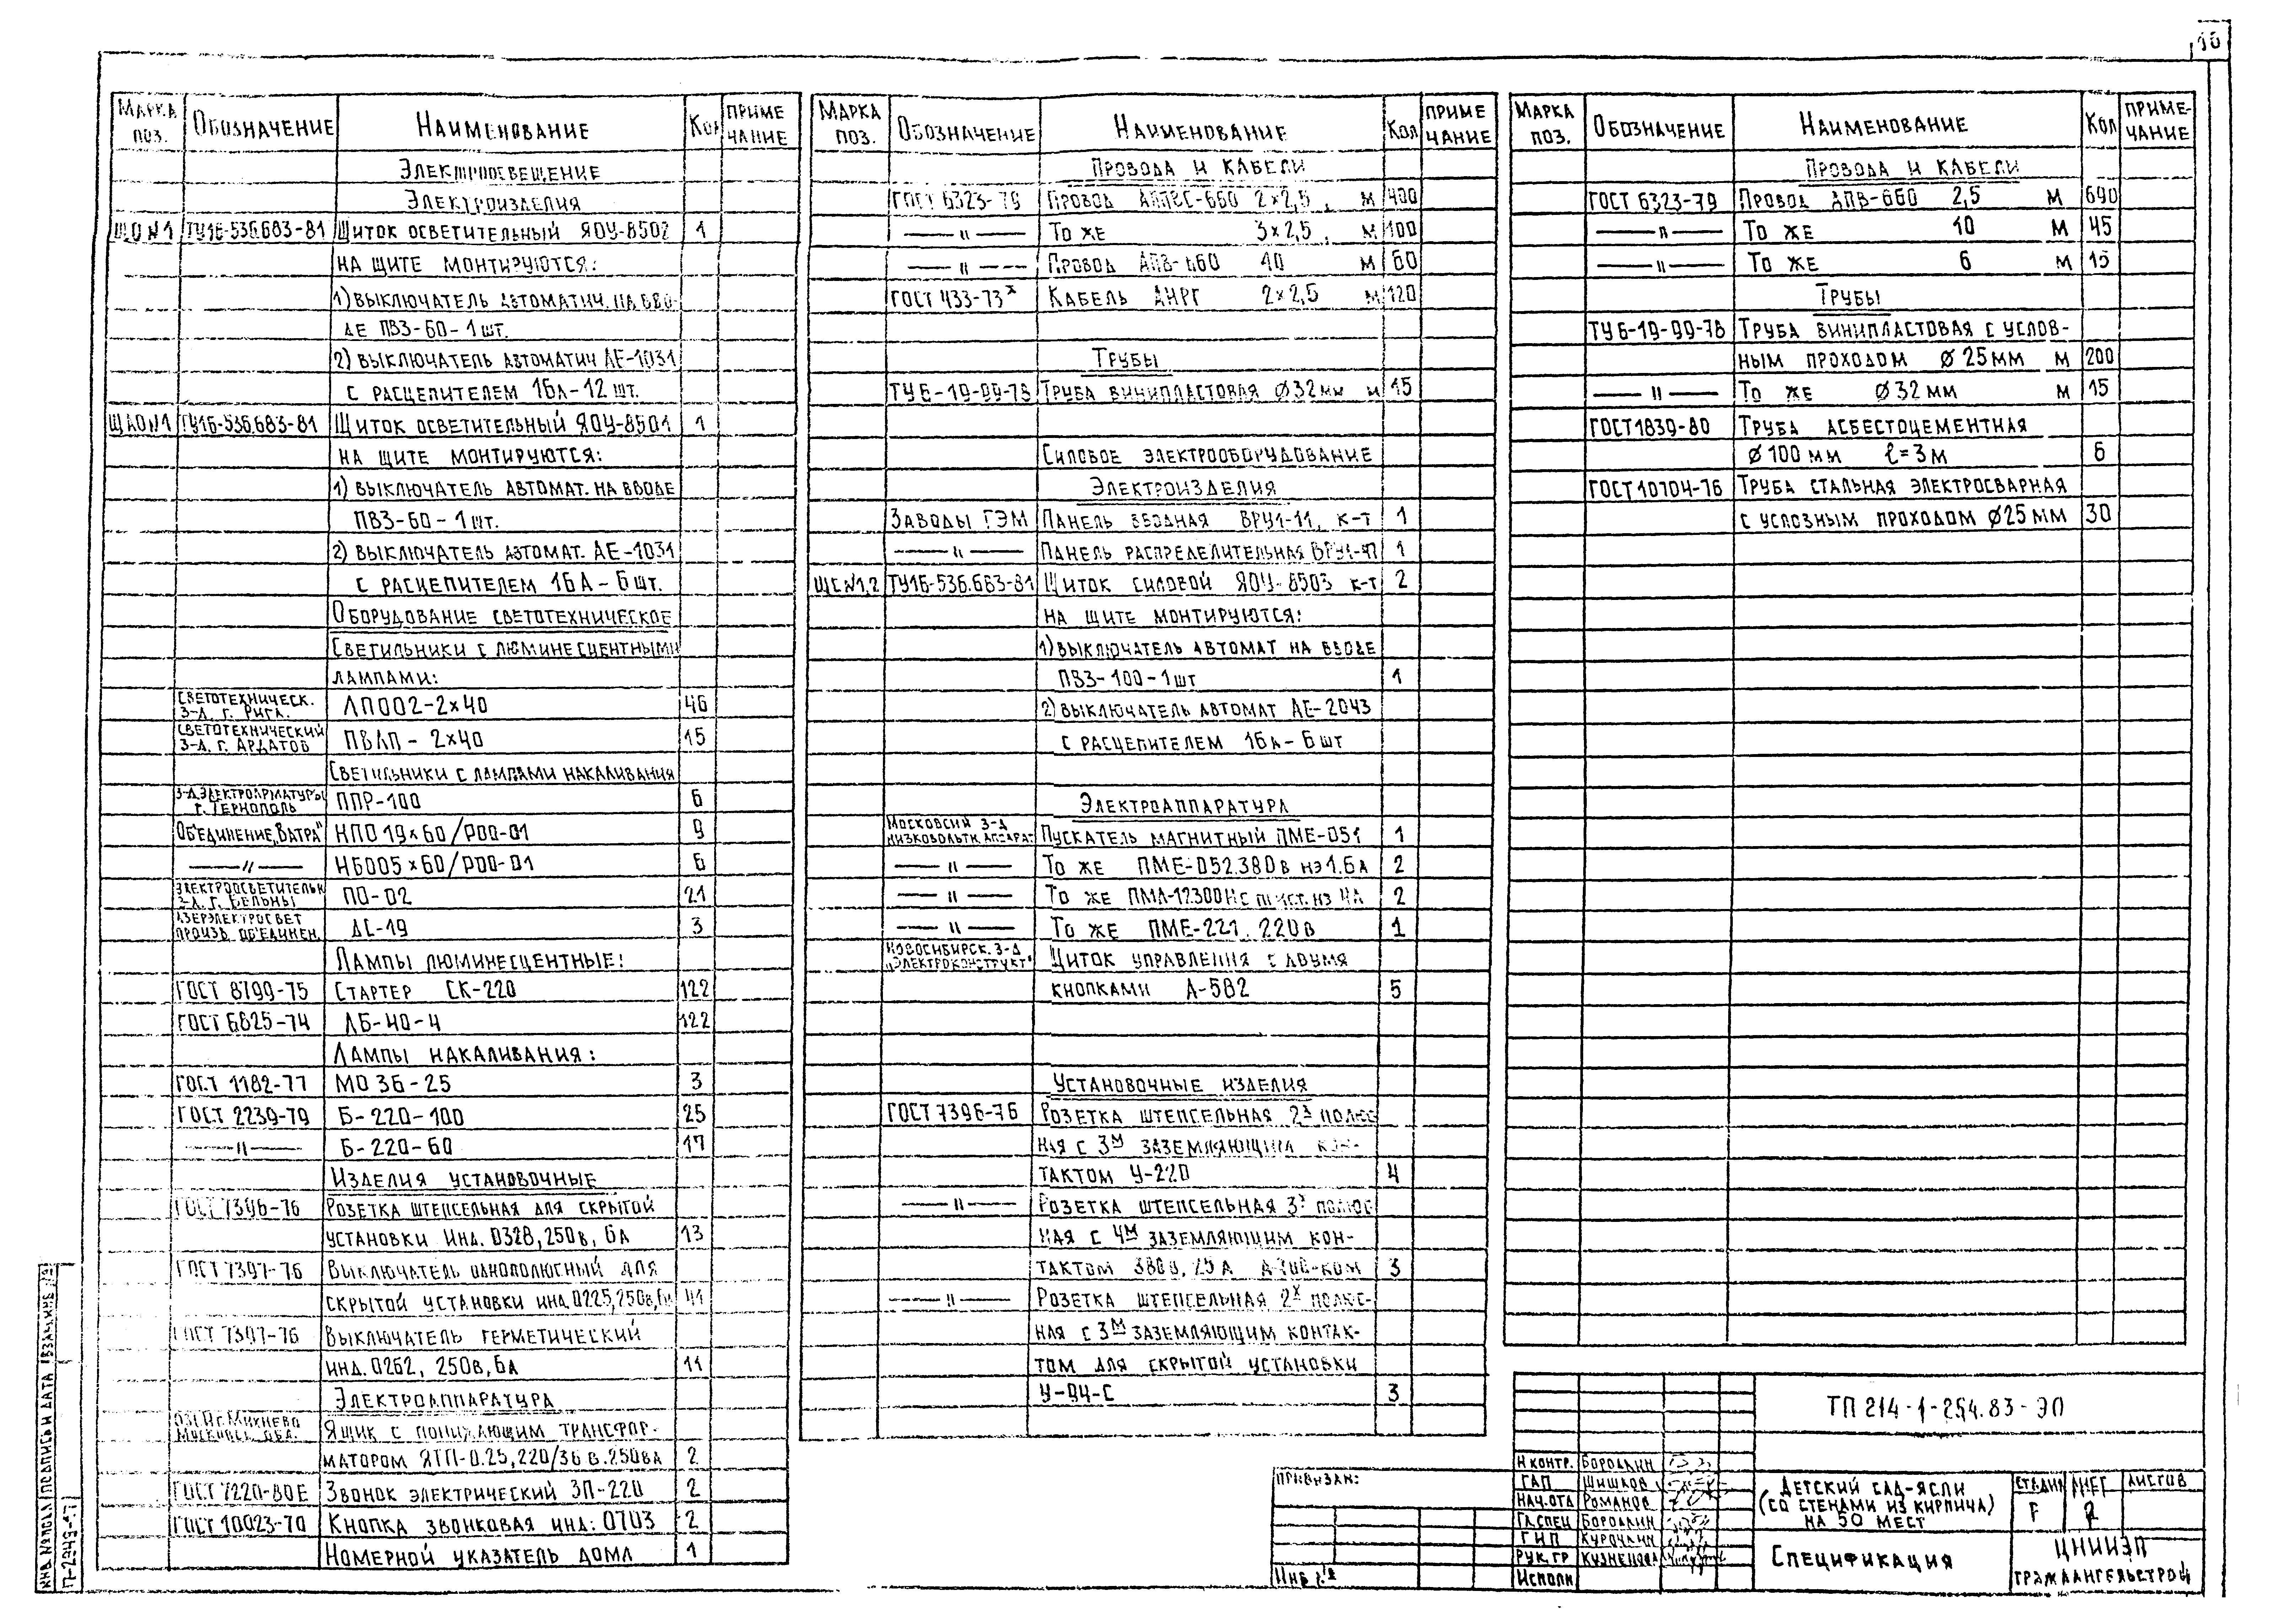 16
Марка поз. Обозначение Наименование Кол Примечание
Электроосвещение
Электроизделия
ЩО №1 ТУ16-536.683-81 Щиток осветительный ЯОУ-8502 1
на щите монтируются:
1) выключатель автоматич. на вво-
де ПВ3-60-1 шт.
2) выключатель автоматич АЕ-1031
с расцепителем 16А-12 шт.
ЩАО№1 ТУ16-536.683-81 Щиток осветительный ЯОУ-8501 1
на щите монтируются:
1) выключатель автомат. на вводе
ПВ3-60-1 шт.
2) выключатель автомат. АЕ-1031
с расцепителем 16А-6 шт.
Оборудование светотехническое
Светильники с люминесцентными
лампами:
Светотехническ. з-д. г. Рига. ЛПО02-2×40 46
Светотехнический з-д. г. Ардатов ПВЛП-2×40 15
Светильники с лампами накаливания
З-д электроарматуры г. Тернополь ППР-100 6
Объединение „Ватра" НПО 19×60/Р00-01 9
—〃— НБО05×60/Р00-01 6
ПО-02 21
Азерэлектросвет произв. объединен. ДС-19 3
Лампы люминесцентные:
ГОСТ 8799-75 Стартер СК-220 122
ГОСТ 6825-74 ЛБ-40-4 122
Лампы накаливания:
ГОСТ 1182-77 МО 36-25 3
ГОСТ 2239-79 Б-220-100 25
—〃— Б-220-60 17
Изделия установочные
ГОСТ 7396-76 Розетка штепсельная для скрытой
установки инд. 0328, 250в, 6А 13
ГОСТ 7397-76 Выключатель однополюсный для
скрытой установки инд. 0225, 250в, 6А 41
ГОСТ 7397-76 Выключатель герметический
инд. 0262, 250в, 6А 11
Электроаппаратура
Михнево Московск. обл. Ящик с понижающим трансфор-
матором ЯТП-0.25, 220/36 в. 250ва 2
ГОСТ 7220-80Е Звонок электрический ЗП-220 2
ГОСТ 10023-70 Кнопка звонковая инд: 0703 2
Номерной указатель дома 1
Марка поз. Обозначение Наименование Кол Примечание
Провода и кабели
ГОСТ 6323-79 Провод АППВС-660 2×2,5, м 400
—〃— То же 3×2,5, м 100
—〃— Провод АПВ-660 10 м 60
ГОСТ 433-73х Кабель АНРГ 2×2,5 м 120
Трубы
ТУ6-19-99-78 Труба винипластовая ⌀32мм м 15
Силовое электрооборудование
Электроизделия
Заводы ГЭМ Панель вводная ВРУ1-11, к-т 1
—〃— Панель распределительная 1
ЩС№1,2 ТУ16-536.683-81 Щиток силовой ЯОУ-8503 к-т 2
на щите монтируются:
1) выключатель автомат на вводе
ПВ3-100-1шт 1
2) выключатель автомат АЕ-2043
с расцепителем 16А-6 шт
Электроаппаратура
Московский з-д низковольтн. аппарат. Пускатель магнитный ПМЕ-051 1
—〃— То же ПМЕ-052.380в нэ1.6А 2
—〃— То же 2
—〃— То же ПМЕ-221. 220в 1
Новосибирск. з-д „Электроконструкт" Щиток управления с двумя
кнопками А-582 5
Установочные изделия
ГОСТ 7396-76 Розетка штепсельная 2х полюс
ная с 3м заземляющим кон-
тактом У-220 4
—〃— Розетка штепсельная 3х полюс
ная с 4м заземляющим кон-
тактом 380в, 25А 3
—〃— Розетка штепсельная 2х полюс-
ная с 3м заземляющим контак-
том для скрытой установки
У-94-С 3
Марка поз. Обозначение Наименование Кол Примечание
Провода и кабели
ГОСТ 6323-79 Провод АПВ-660 2,5 м 690
—〃— То же 10 м 45
—〃— То же 6 м 15
Трубы
ТУ6-19-99-78 Труба винипластовая с услов-
ным проходом ⌀25мм м 200
—〃— То же ⌀32мм м 15
ГОСТ1839-80 Труба асбестоцементная
⌀100мм ℓ=3м 6
ГОСТ10704-76 Труба стальная электросварная
с условным проходом ⌀25мм 30
ТП 214-1-254.83-ЭЛ
Привязан:
Инв №
Н контр. Бородкин
ГАП Шишков
Нач.отд Романов
Гл.спец Бородкин
ГИП Курочкин
Рук.гр Кузнецова
Исполн
Детский сад-ясли
(со стенами из кирпича)
на 50 мест
Спецификация
Стадия Лист Листов
Р 2
ЦНИИЭП
граждансельстрой
Инв № подл Подпись и дата Взам.инв №